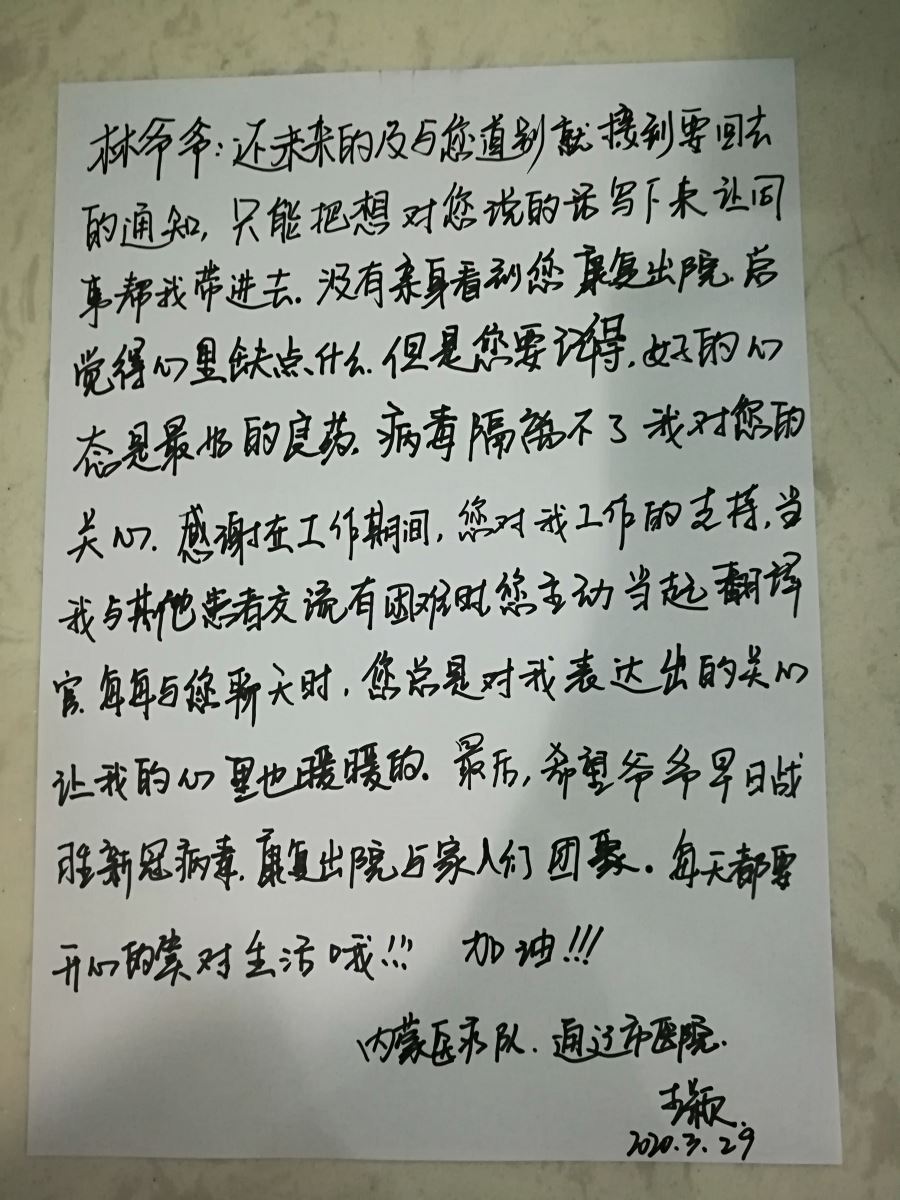 林爷爷：还未来的及与您道别就接到要回去
的通知，只能把想对您说的话写下来让同
事帮我带进去。没有亲身看到您康复出院，总
觉得心里缺点什么。但是您要记得，好的心
态是最好的良药。病毒隔离不了我对您的
关心。感谢在工作期间，您对我工作的支持，当
我与其他患者交流有困难时您主动当起翻译
官，每每与您聊天时，您总是对我表达出的关心
让我的心里也暖暖的。最后，希望爷爷早日战
胜新冠病毒，康复出院与家人们团聚。每天都要
开心的笑对生活哦!!! 加油!!!
内蒙医疗队．通辽市医院．
王颖
2020.3.29